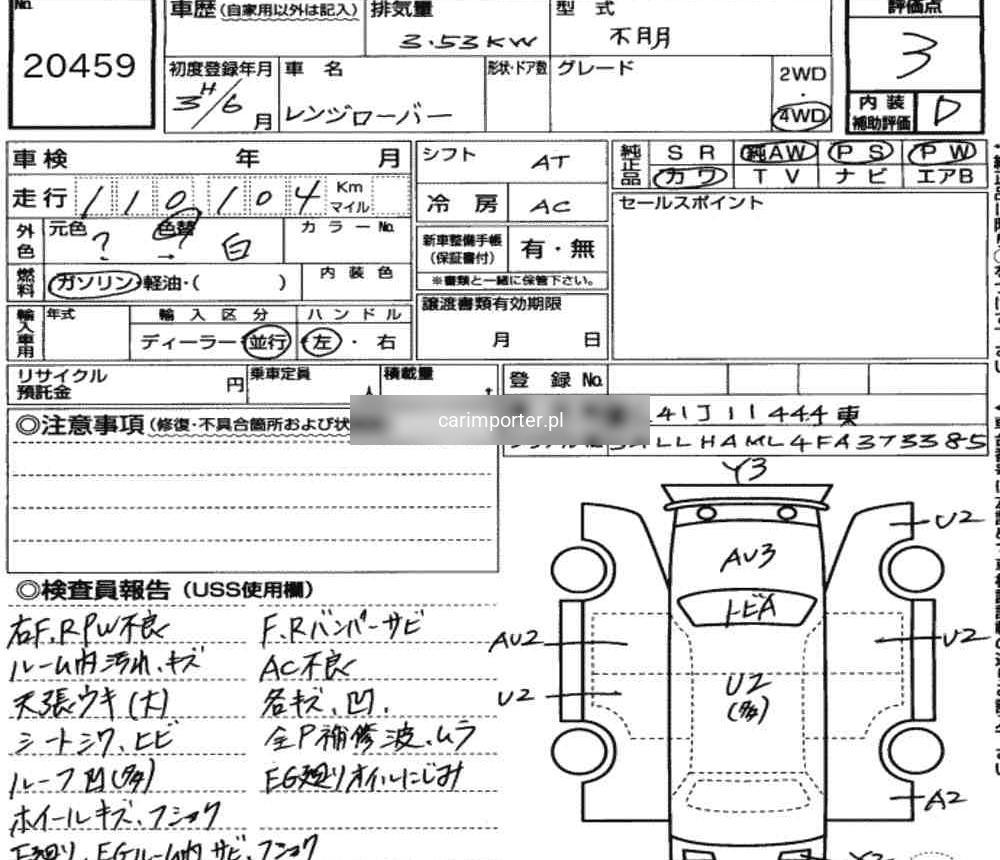 No.
20459
車歴 (自家用以外は記入)
排気量
3.53KW
型 式
不明
評価点
3
初度登録年月
3H/6
月
車 名
レンジローバー
形状・ドア数
グレード
2WD
・
4WD
内装
補助評価
D
車検 年 月
走行 1 1 0 1 0 4 Km
マイル
外色
元色 ?
色替 ? → 白
カラーNo.
燃料
ガソリン・軽油・( )
内装色
輸入車用
年式
輸入区分
ディーラー・並行
ハンドル
左・右
シフト AT
冷房 AC
新車整備手帳
(保証書付)
有・無
※書類と一緒に保管下さい。
譲渡書類有効期限
月 日
純正品
SR 純AW PS PW
カワ TV ナビ エアB
セールスポイント
リサイクル
預託金
円
乗車定員
人
積載量
t
登録 No.
41J11444東
SALLHAML4FA373385
carimporter.pl
◎注意事項 (修復・不具合箇所および状
◎検査員報告 (USS使用欄)
右F.R PW不良
ルーム内汚れ、キズ
天張ウキ(大)
シートシワ、ヒビ
ルーフ凹(多)
ホイールキズ、フショク
F廻り、EGルーム内サビ、フショク
F.Rバンパーサビ
AC不良
各キズ、凹.
全P補修波、ムラ
EG廻りオイルにじみ
Y3
AU3
トビA
U2
AU2
U2
U2
U2
(多)
A2
Y2